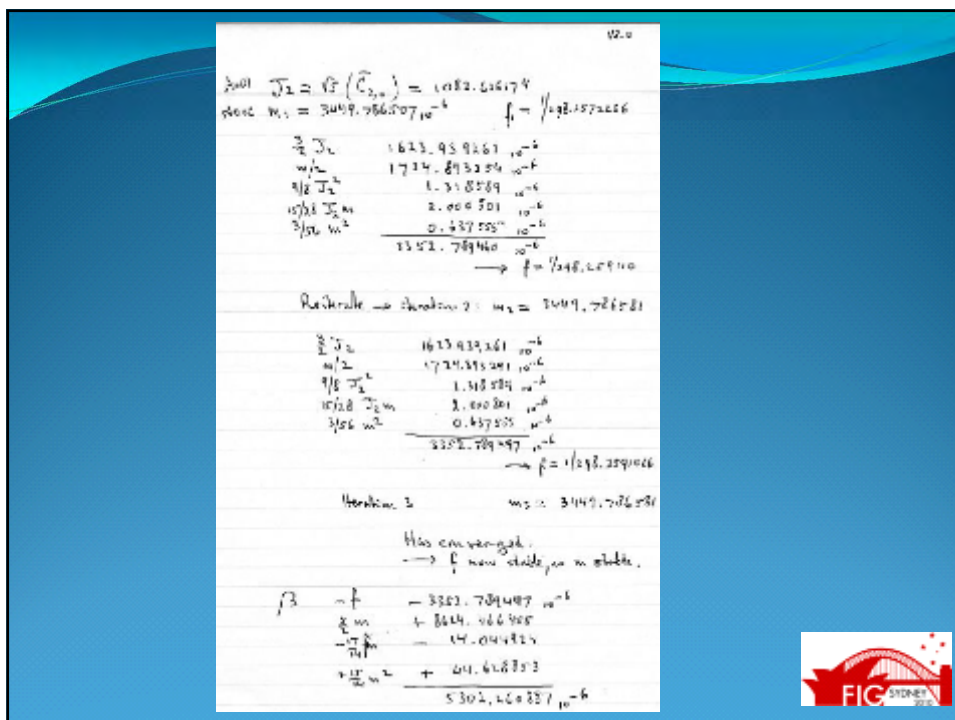 V2.0
J₂ = √5 (C̄₂,₀) = 1082.626174
m₁ = 3449.786507 10⁻⁶ f₁ = 1/298.2572226
3/2 J₂ 1623.939261 10⁻⁶
m/2 1724.893254 10⁻⁶
9/8 J₂² 1.318589 10⁻⁶
15/28 J₂ m 2.000801 10⁻⁶
3/56 m² 0.637555 10⁻⁶
3352.789460 10⁻⁶
→ f = 1/298.259110
Reiterate → iteration 2: m₂ = 3449.786581
3/2 J₂ 1623.939261 10⁻⁶
m/2 1724.893291 10⁻⁶
9/8 J₂² 1.318589 10⁻⁶
15/28 J₂ m 2.000801 10⁻⁶
3/56 m² 0.637555 10⁻⁶
3352.789497 10⁻⁶
→ f = 1/298.2591066
Iteration 3 m₃ = 3449.786581
Has converged.
→ f now stable, as m stable.
β -f - 3352.789497 10⁻⁶
5/2 m + 8624.466455
- 14.044924
+ 15/4 m² + 44.628853
5302.260887 10⁻⁶
FIG SYDNEY
2010